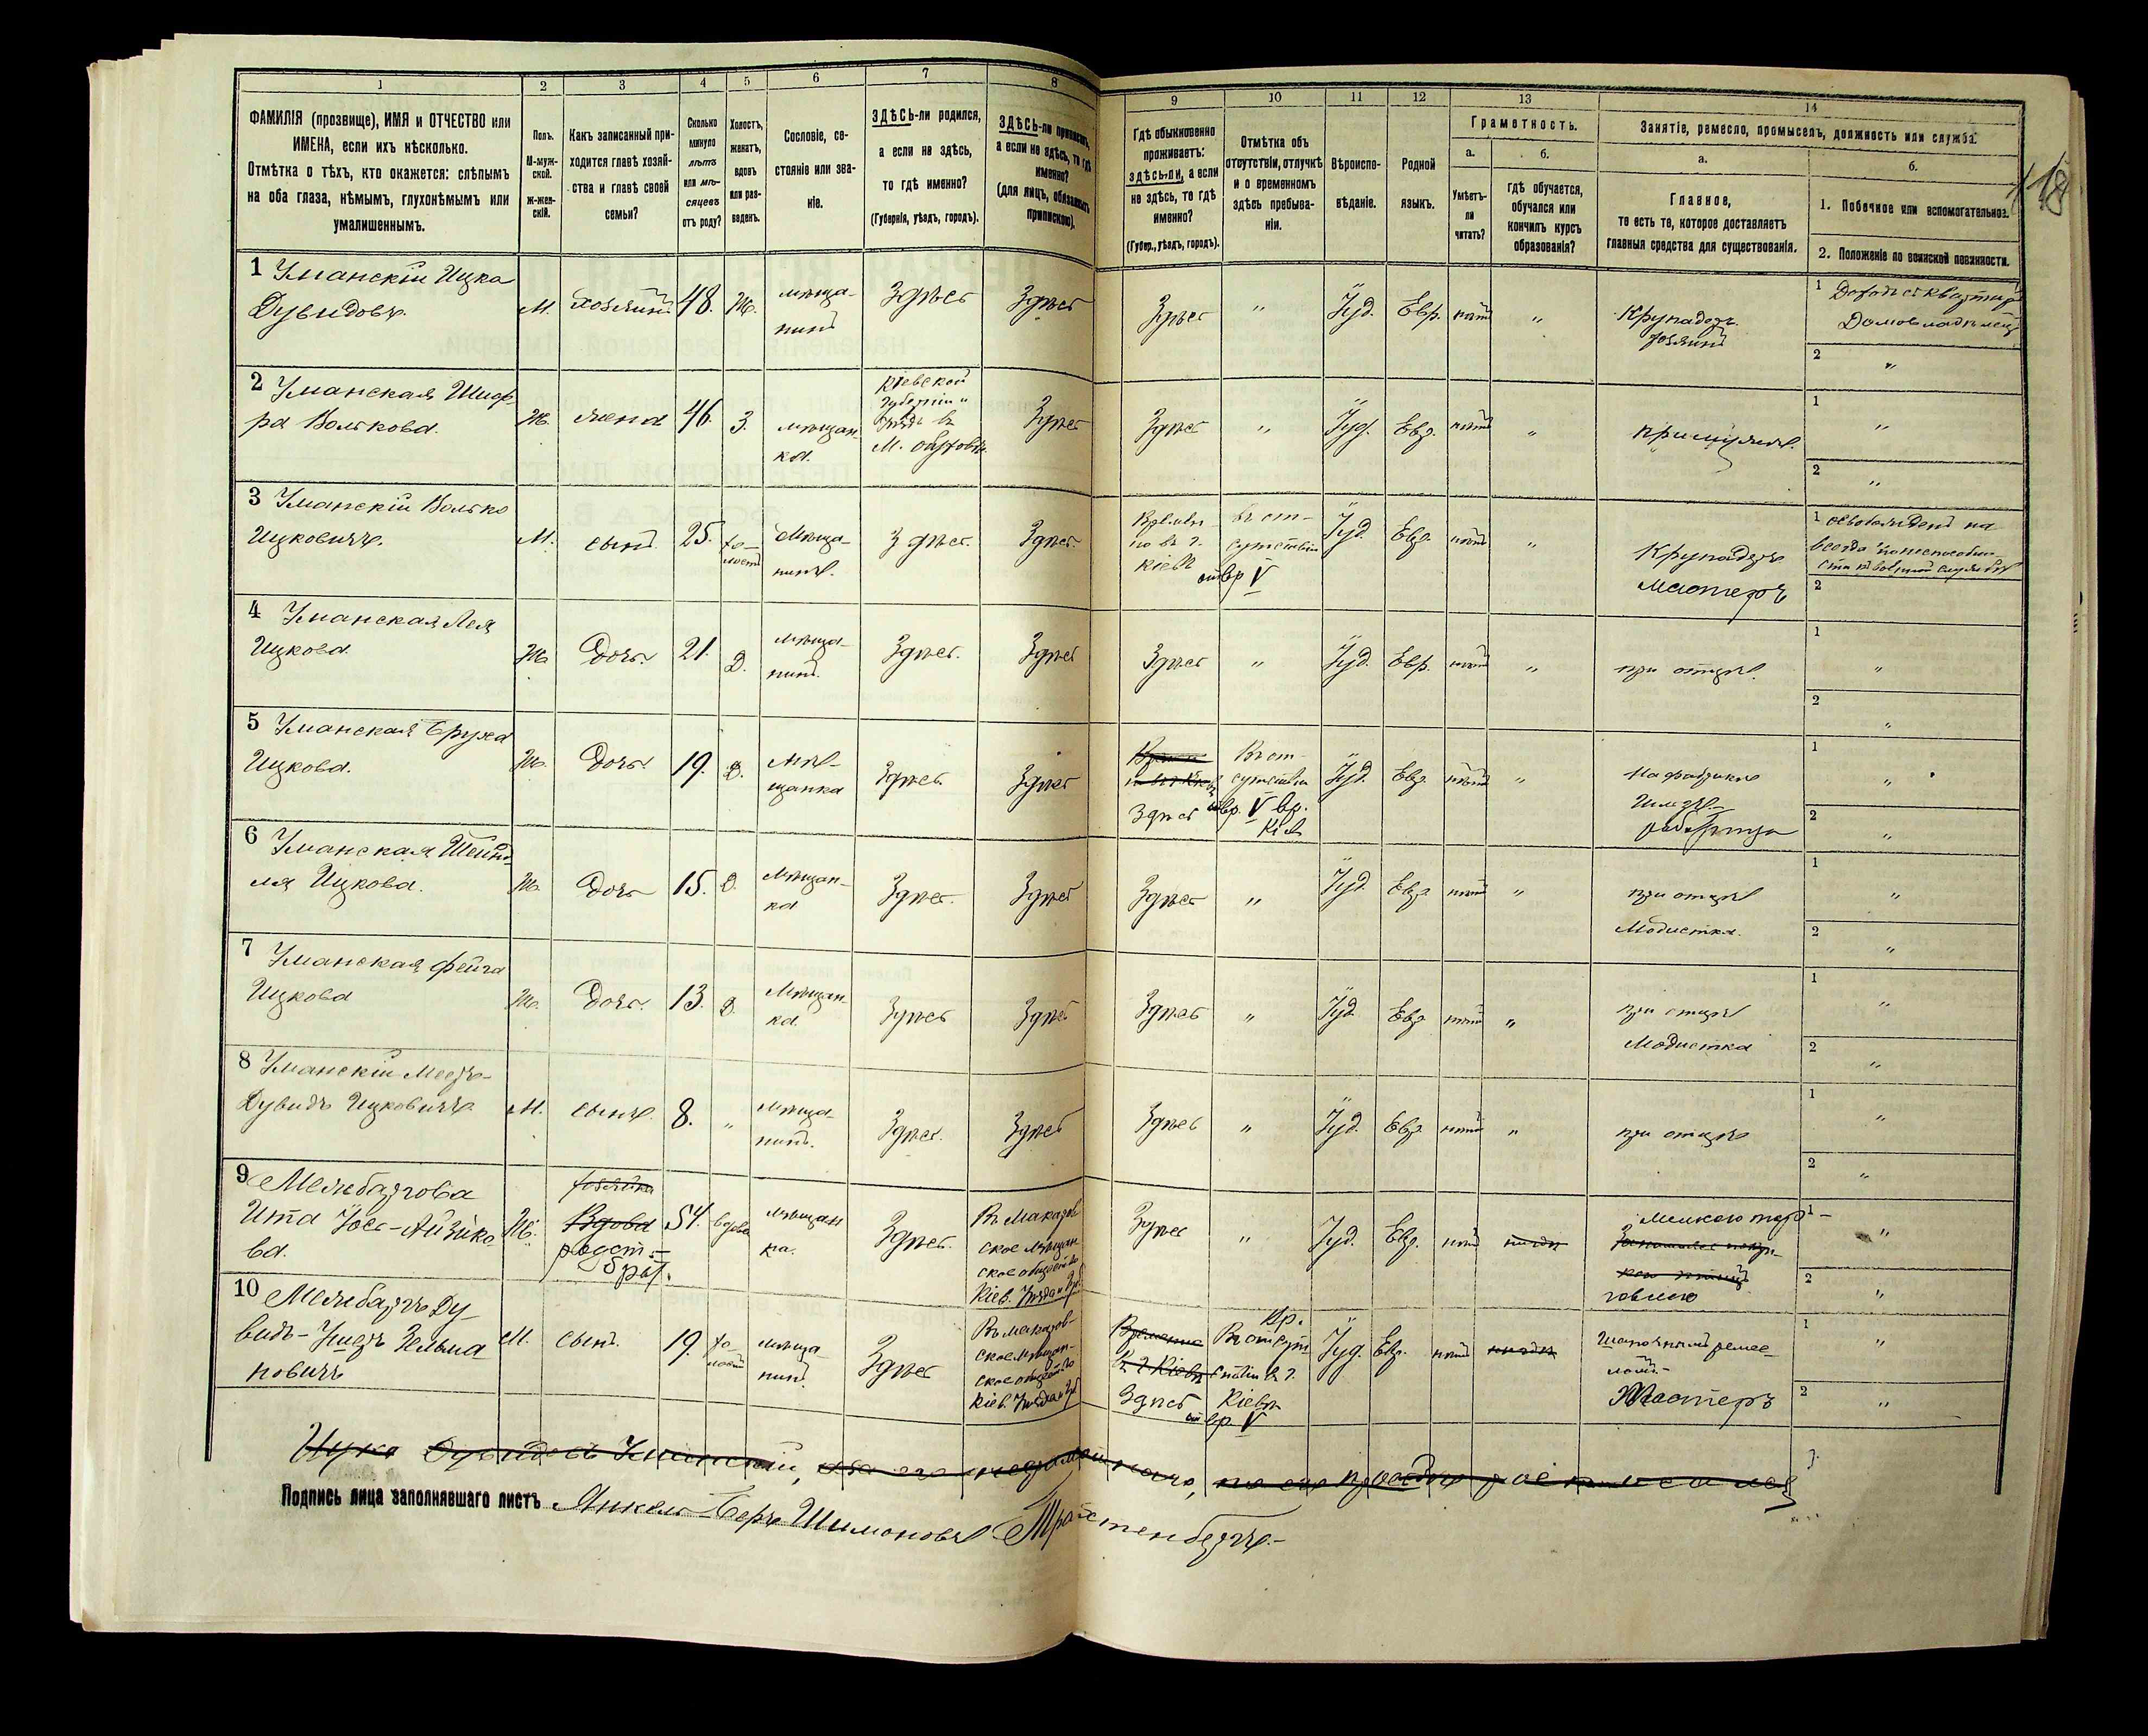 1
2
3
4
5
6
7
8
9
10
11
12
13
14
ФАМИЛІЯ (прозвище), ИМЯ и ОТЧЕСТВО или
ИМЕНА, если ихъ нѣсколько.
Отмѣтка о тѣхъ, кто окажется: слѣпымъ
на оба глаза, нѣмымъ, глухонѣмымъ или
умалишеннымъ.
Полъ.
М-муж-
ской.
Ж-жен-
скій.
Какъ записанный при-
ходится главѣ хозяй-
ства и главѣ своей
семьи?
Сколько
минуло
лѣтъ
или мѣ-
сяцевъ
отъ роду?
Холостъ,
женатъ,
вдовъ
или раз-
веденъ.
Сословіе, со-
стояніе или зва-
ніе.
ЗДѢСЬ-ли родился,
а если не здѣсь,
то гдѣ именно?
(Губернія, уѣздъ, городъ).
ЗДѢСЬ-ли приписанъ,
а если не здѣсь, то гдѣ
именно?
(для лицъ, обязанныхъ
припискою).
Гдѣ обыкновенно
проживаетъ:
здѣсь-ли, а если
не здѣсь, то гдѣ
именно?
(Губер., уѣздъ, городъ).
Отмѣтка объ
отсутствіи, отлучкѣ
и о временномъ
здѣсь пребыва-
ніи.
Вѣроиспо-
вѣданіе.
Родной
языкъ.
Грамотность.
а.
Умѣетъ-
ли
читать?
б.
гдѣ обучается,
обучался или
кончилъ курсъ
образованія?
Занятіе, ремесло, промыселъ, должность или служба.
а.
Главное,
то есть то, которое доставляетъ
главныя средства для существованія.
б.
1. Побочное или вспомогательное.
2. Положеніе по воинской повинности.
1 Уманскій Ицка
Дувидовъ.
М. хозяинъ 48. Ж. мѣща-
нинъ
Здѣсь Здѣсь Здѣсь " Іуд. Евр. "
Крупадеръ
хозяинъ
1 Доходъ съ квартиръ
2 "
2 Уманская Шиф-
ра Волькова.
Ж. жена 46. З. мѣщан-
ка.
Кіевской
Губерніи
М.
Здѣсь Здѣсь " Іуд. Евр. "
при мужѣ.
1 "
2 "
3 Уманскій Волько
Ицковичъ.
М. сынъ 25. хо-
лостъ
Мѣща-
нинъ.
Здѣсь. Здѣсь.
Времен-
но въ г.
Кіевѣ
въ от-
сутствіи
V
Іуд. Евр. "
Крупадеръ
Мастеръ
1 освобожденъ на
всегда по неспособно-
сти къ военной службѣ
2
4 Уманская Лея
Ицкова.
Ж. Дочь. 21. Д. мѣща-
нинъ.
Здѣсь. Здѣсь Здѣсь " Іуд. Евр. "
при отцѣ.
1 "
2 "
5 Уманская Бруха
Ицкова.
Ж. Дочь. 19. Д. Мѣ-
щанка
Здѣсь Здѣсь
Здѣсь
Въ от-
сутствіи
V вр.
Кіев
Іуд. Евр. "
На фабрикѣ
1 "
2 "
6 Уманская Шейнд-
ля Ицкова.
Ж. Дочь 15. Д. Мѣщан-
ка
Здѣсь. Здѣсь Здѣсь " Іуд. Евр. "
при отцѣ
Модистка.
1 "
2 "
7 Уманская Фейга
Ицкова
Ж. Дочь. 13. Д. Мѣщан-
ка.
Здѣсь Здѣсь Здѣсь " Іуд. Евр. "
при отцѣ
Модистка
1 "
2 "
8 Уманскій Меер-
Дувидъ Ицковичъ
М. сынъ. 8. " мѣща-
нинъ.
Здѣсь. Здѣсь Здѣсь " Іуд. Евр. "
при отцѣ
1 "
2 "
9
Ита Іось-Айзико
ва.
Ж. хозяйка
Вдова
родст.-
54. вдова мѣщан
ка.
Здѣсь.
Въ Макаров
ское мѣщан
ское общество
Кіев.
Здѣсь " Іуд. Евр.
Мелкою тор-
говлею
1 "
2 "
10
видъ- Зельма
новичъ
М. сынъ. 19. хо-
лостъ
мѣща-
нинъ.
Здѣсь
Въ Макаров-
ское мѣщан-
ское общество
Кіев.
Временно
въ г. Кіевѣ
Здѣсь
Вр.
Въ отсут
ствіи въ г.
Кіевѣ
V
Іуд. Евр.
Мастеръ
1 "
2 "
Ицко Дувидовъ Уманскій, а за его неграмотнаго, по его просьбѣ росписался
Подпись лица заполнявшаго листъ Янкель-Беръ Шимоновъ Трахтенбергъ.-